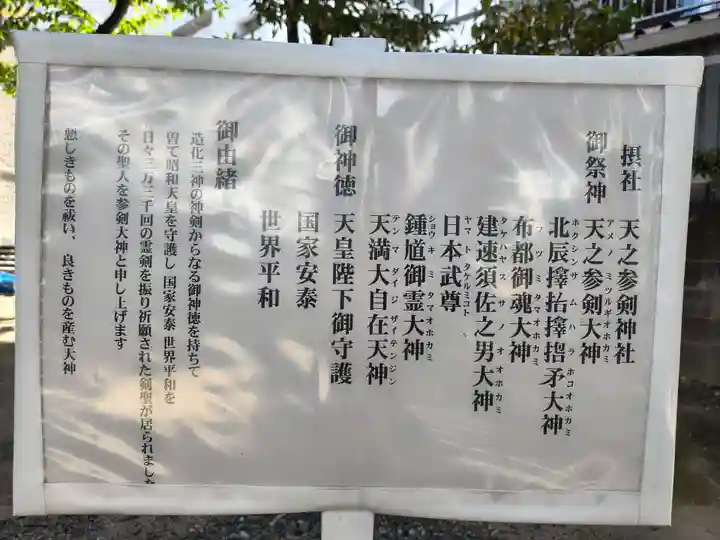 摂社 天之参剣神社
御祭神 天之参剣大神
アメノミツルギオホカミ
北辰擇抬擇摺矛大神
ホクシンサムハラホコオホカミ
布都御魂大神
フツミタマオホカミ
建速須佐之男大神
タケハヤスサノオオホカミ
日本武尊
ヤマトタケルミコト
鍾馗御霊大神
ショウキミタマオホカミ
天満大自在天神
テンマダイジザイテンジン
御神徳 天皇陛下御守護
国家安泰
世界平和
御由緒
造化三神の神剣からなる御神徳を持ちて
曽て昭和天皇を守護し国家安泰 世界平和を
日々三万三千回の霊剣を振り祈願された剣聖が居られました
その聖人を参剣大神と申し上げます
悪しきものを祓い、良きものを産む大神